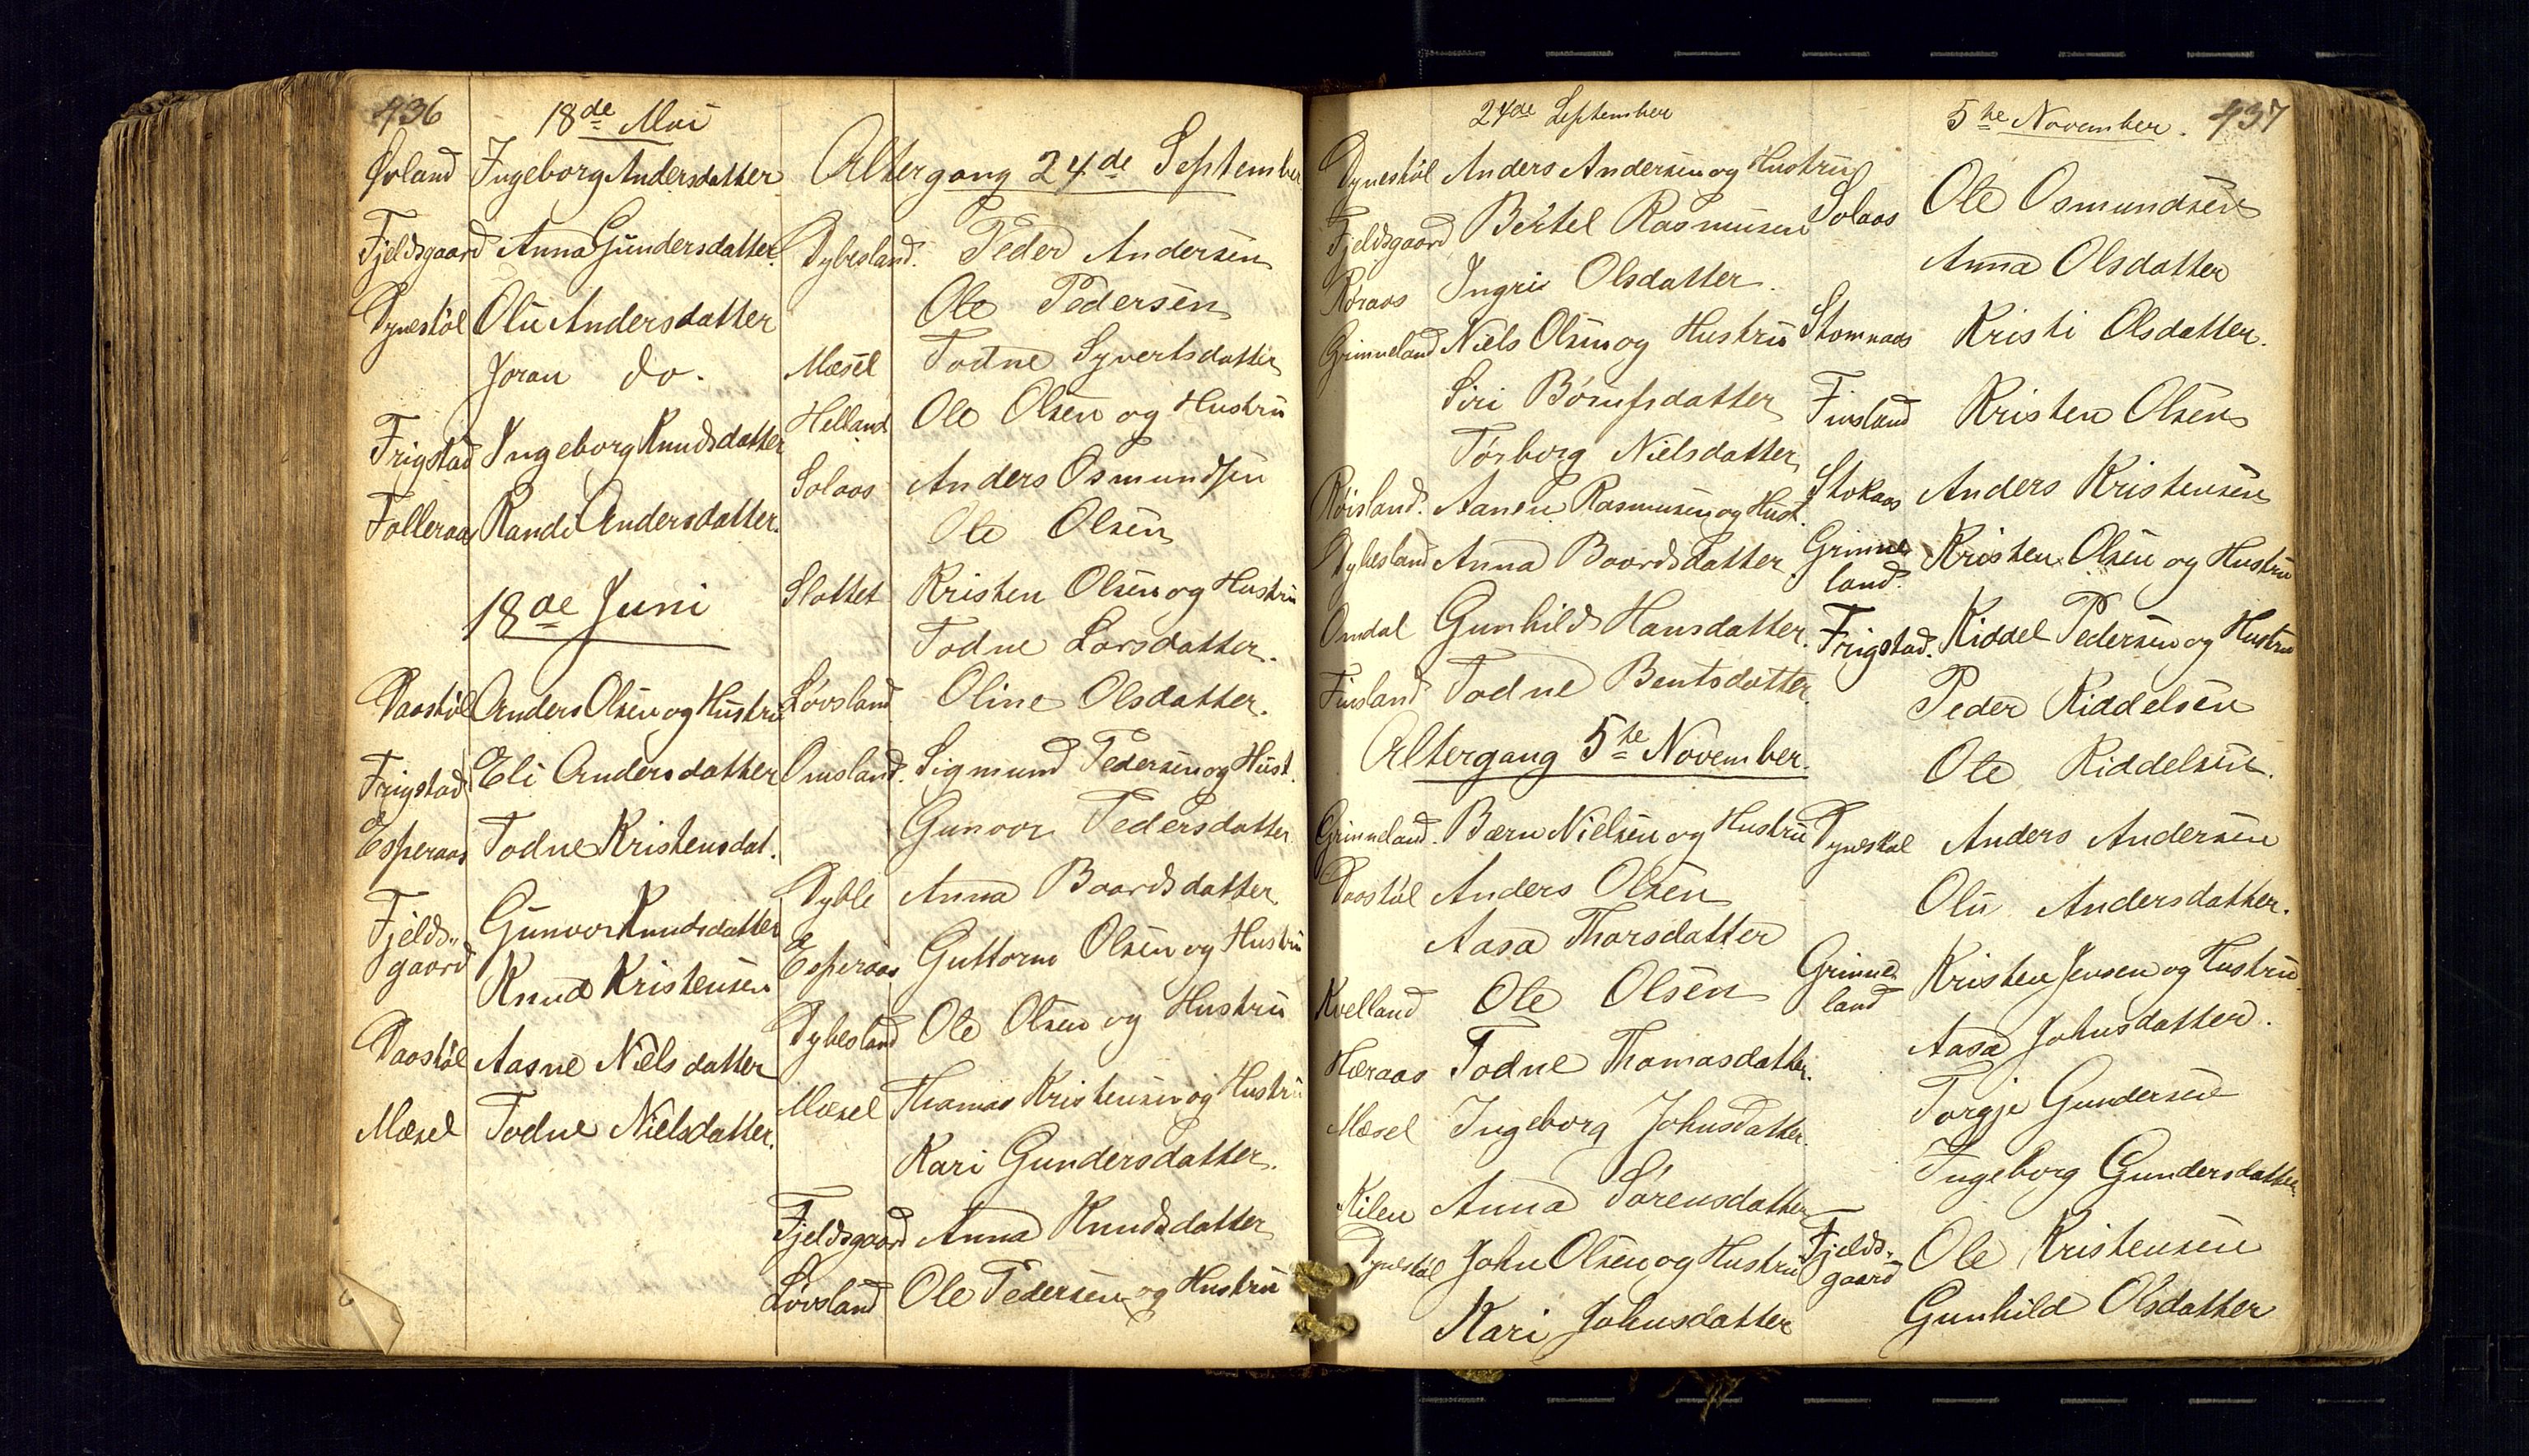 436
18de Mai
Øvland Ingeborg Andersdatter
Fjeldsgaard Anna Gundersdatter.
Dynestöl Olü Andersdatter
Joran do.
Frigstad Ingeborg Knudsdatter
Folleraas Randi Andersdatter.
18de Juni
Daastöl Anders Olsen og Hustru
Frigstad Eli Andersdatter
Esperaas Todne Kristensdat.
Fjelds„
gaard Gunvor Knudsdatter
Knud Kristensen
Daastöl Aasne Nielsdatter
Mæsel Todne Nielsdatter.
Altergang 24de September
Dybesland. Peder Andersen
Ole Pedersen
Mæsel Todne Syvertsdatter
Helland Ole Olsen og Hustru
Solaas Anders Osmundsen
Ole Olsen
Slottet Kristen Olsen og Hustru
Todne Larsdatter.
Lövsland Oline Olsdatter.
Omsland. Sigmund Pedersen og Hust.
Gunvor Pedersdatter
Dyble Anna Baardsdatter
Esperaas Guttorm Olsen og Hustru
Dybesland Ole Olsen og Hustru
Mæsel Thomas Kristensen og Hustru
Kari Gundersdatter.
Fjeldsgaard Anna Knudsdatter
Lövsland Ole Pedersen og Hustru
24de September
Dynestöl Anders Andersen og Hustru
Fjeldsgaard Bertel Rasmusen
Röraas Ingri Olsdatter.
Grimneland Niels Olsen og Hustru
Siri Börufsdatter
Törborg Nielsdatter
Röisland. Aanen Rasmusen og Hust.
Dybesland Anna Baardsdatter
Omdal Gunhild Hansdatter.
Finsland Todne Bentsdatter.
Altergang 5te November.
Grimneland. Bærn Nielsen og Hustru
Daastöl Anders Olsen
Aasa Thorsdatter
Kvelland Ole Olsen
Hæraas Todne Thomasdatter.
Mæsel Ingeborg Johnsdatter.
Kilen Anna Sörensdatter
Dynestöl John Olsen og Hustru
Kari Johnsdatter
5te November. 437
Solaas Ole Osmundsen
Anna Olsdatter
Stomnaas Kristi Olsdatter.
Finsland Kristen Olsen
Stokaas Anders Kristensen
Grimne
land. Kristen Olsen og Hustru
Frigstad. Kiddel Pedersen og Hustru
Peder Kiddelsen
Ole Kiddelsen.
Dynestöl Anders Andersen
Olü Andersdatter.
Grimne
land Kristen Jensen og Hustru
Aasa Johnsdatter.
Torgje Gundersen
Ingeborg Gundersdatter.
Fjelds„
gaard Ole Kristensen
Gunhild Olsdatter